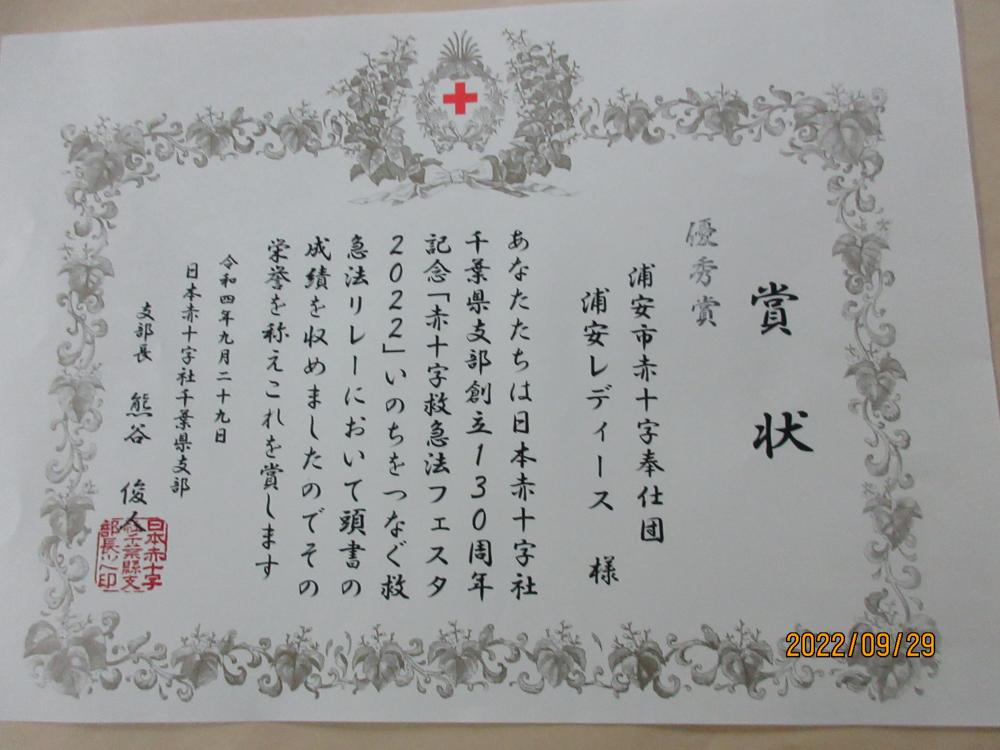 賞状
優秀賞
浦安市赤十字奉仕団
浦安レディース 様
あなたたちは日本赤十字社
千葉県支部創立130周年
記念「赤十字救急法フェスタ
2022」いのちをつなぐ救
急法リレーにおいて頭書の
成績を収めましたのでその
栄誉を称えこれを賞します
令和四年九月二十九日
日本赤十字社千葉県支部
支部長 熊谷 俊人
日本赤十字
社千葉縣支
部長之印
2022/09/29